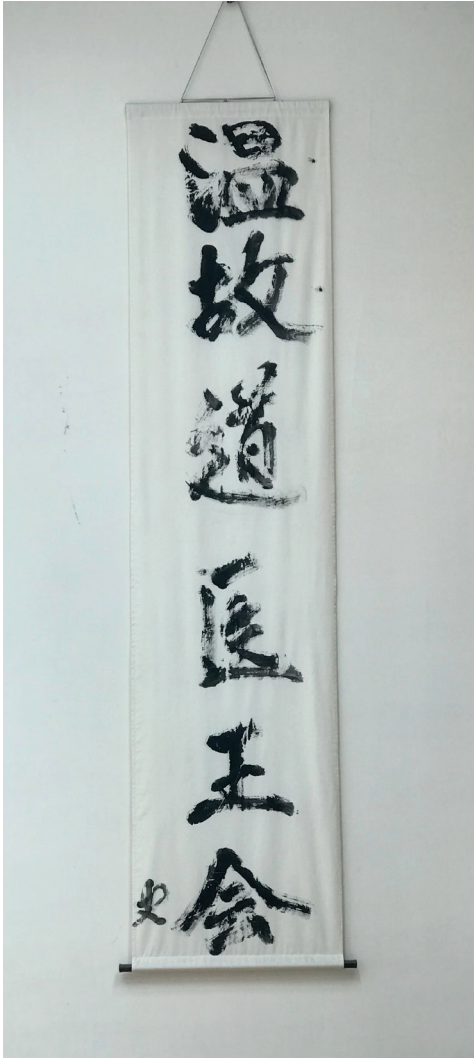 温故道医王会
史